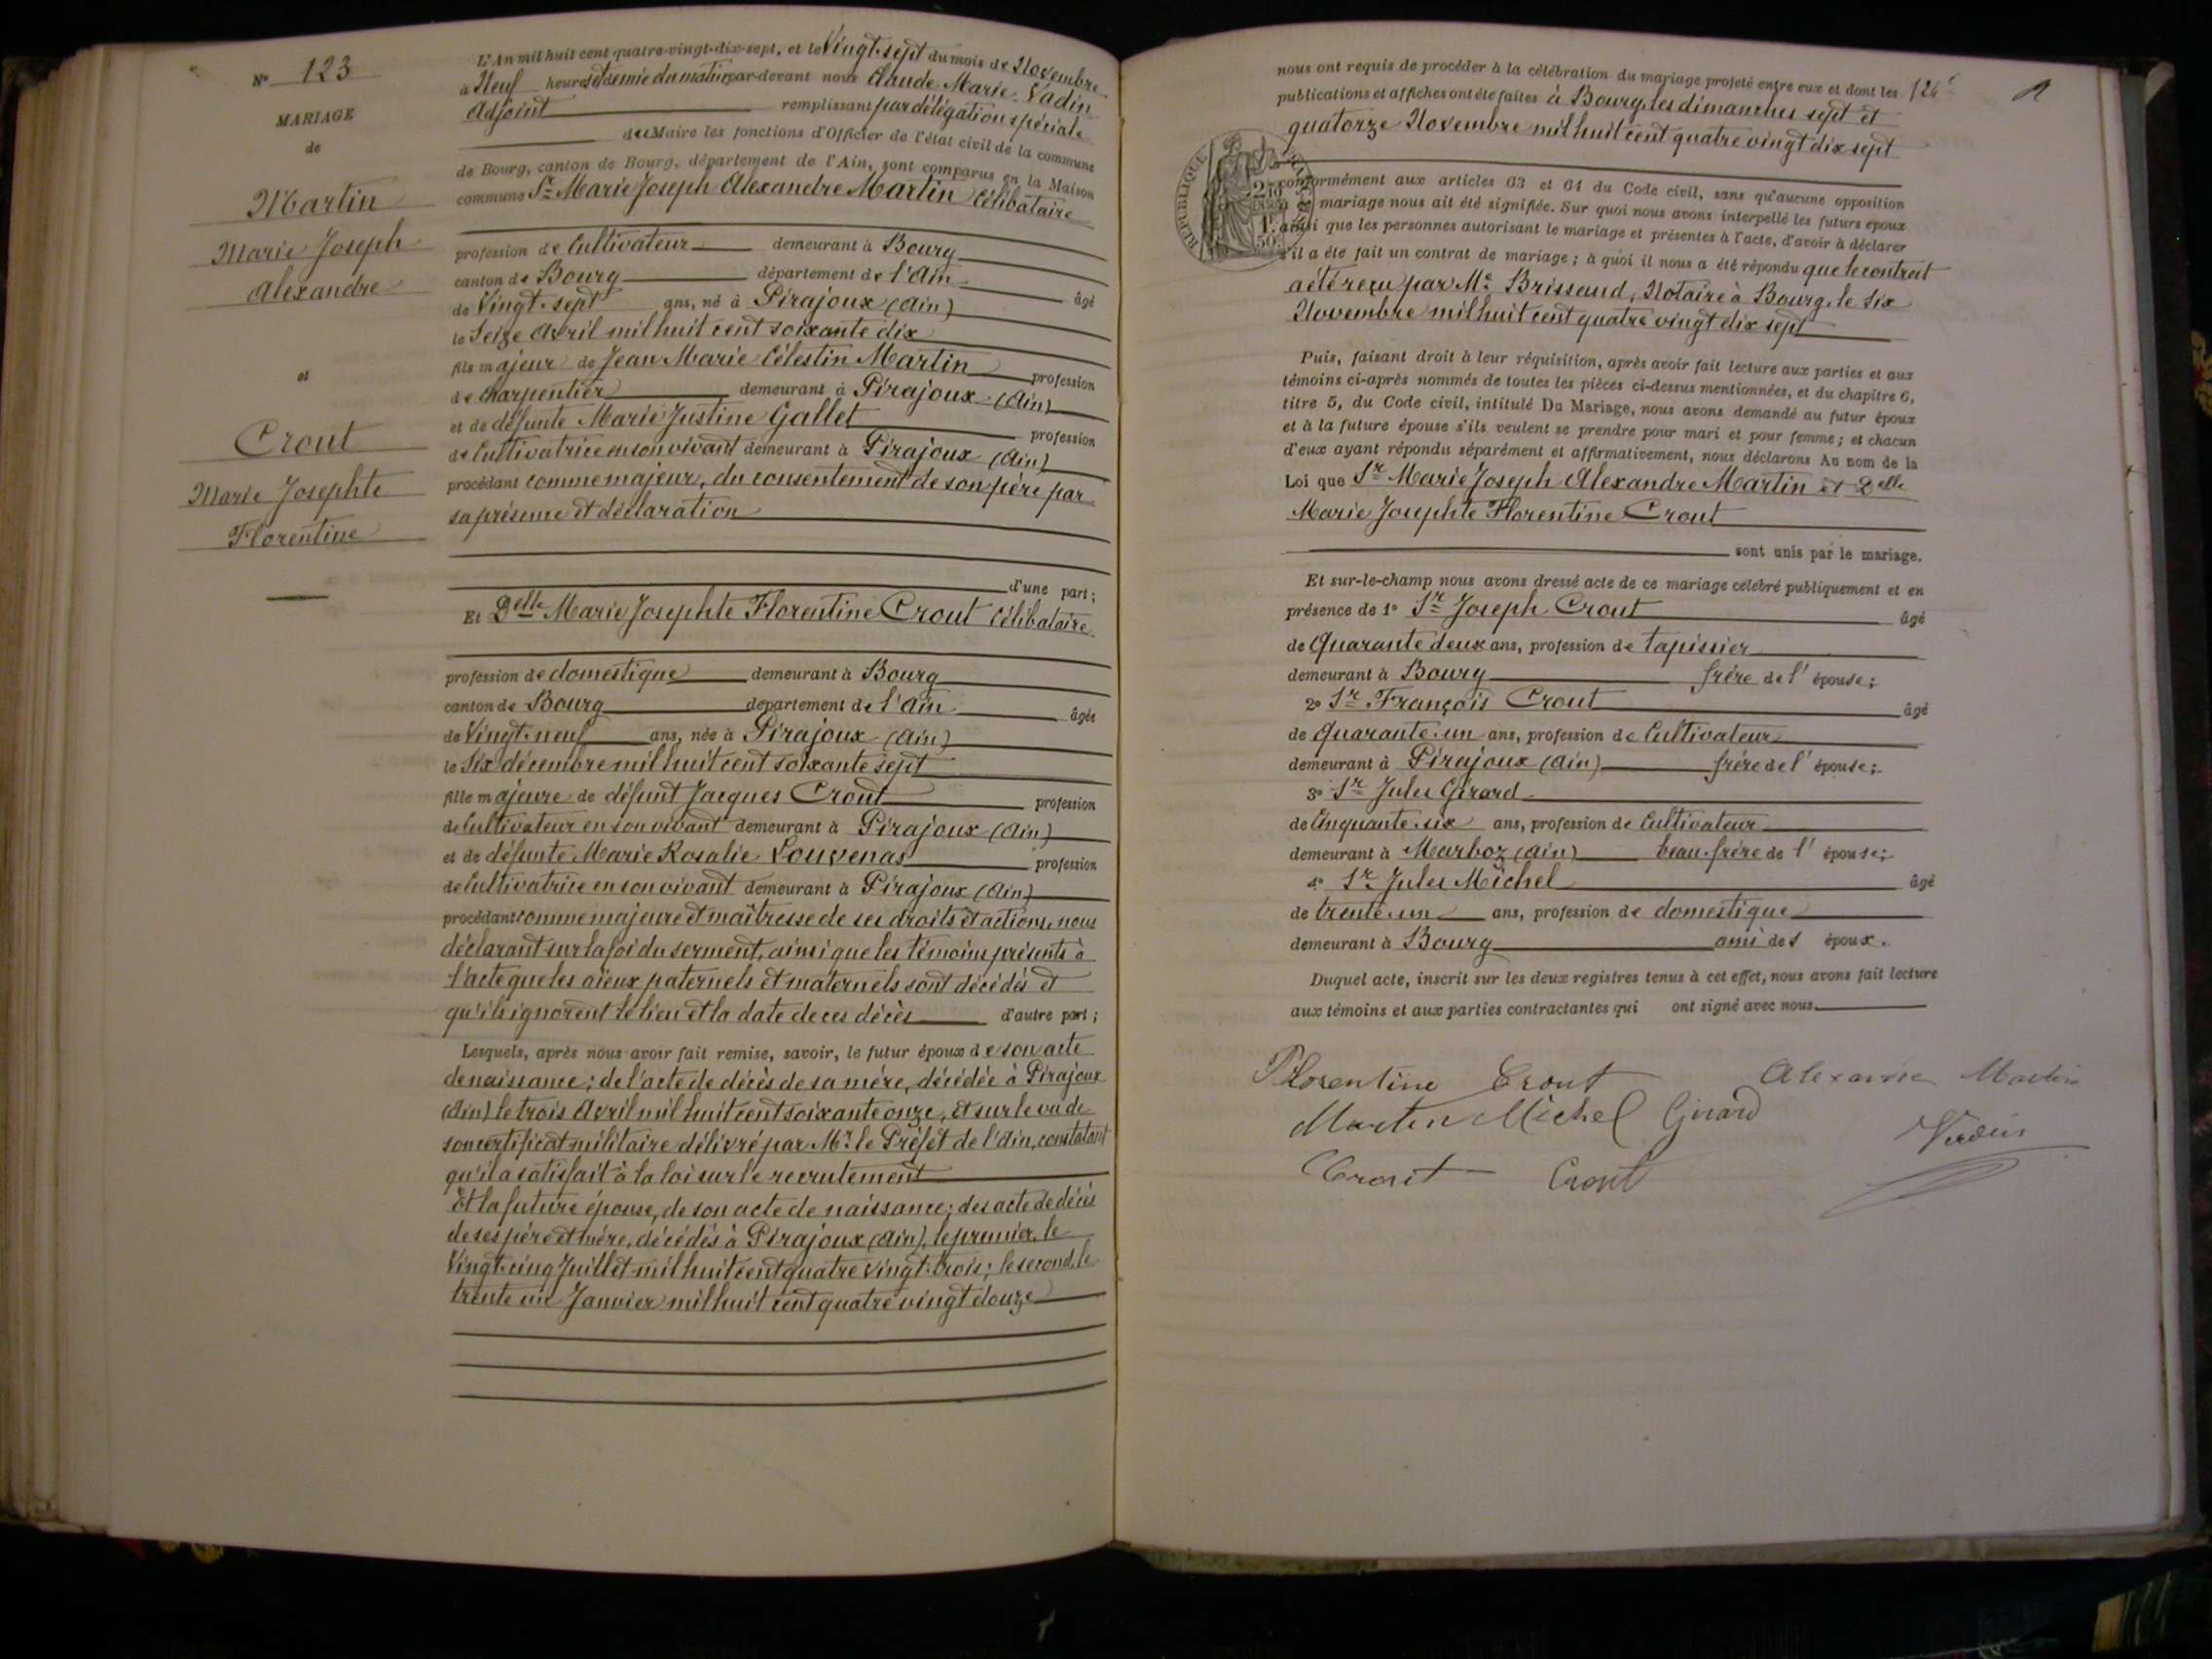 N° 123
MARIAGE
de
Martin
Marie Joseph
Alexandre
et
Crout
Marie Josephte
Florentine
L'An mil huit cent quatre-vingt-dix-sept, et le Vingt-sept du mois de Novembre
à Neuf heures et demie du matin par-devant nous Claude Marie Vadin
Adjoint remplissant par délégation spéciale
du Maire les fonctions d'Officier de l'état civil de la commune
de Bourg, canton de Bourg, département de l'Ain, sont comparus en la Maison
commune Sr Marie Joseph Alexandre Martin Célibataire
profession de Cultivateur demeurant à Bourg
canton de Bourg département de l'Ain âgé
de Vingt-sept ans, né à Pirajoux (Ain)
le Seize Avril mil huit cent soixante dix
fils majeur de Jean Marie Célestin Martin profession
de Charpentier demeurant à Pirajoux (Ain)
et de défunte Marie Justine Gallet profession
de Cultivatrice en son vivant demeurant à Pirajoux (Ain)
procédant comme majeur, du consentement de son père par
sa présence et déclaration
d'une part;
Et Delle Marie Josephte Florentine Crout Célibataire.
profession de domestique demeurant à Bourg
canton de Bourg département de l'Ain âgée
de Vingt-neuf ans, née à Pirajoux (Ain)
le Six décembre mil huit cent soixante sept
fille majeure de défunt Jacques Crout profession
de Cultivateur en son vivant demeurant à Pirajoux (Ain)
et de défunte Marie Rosalie Louvenas profession
de Cultivatrice en son vivant demeurant à Pirajoux (Ain)
procédant comme majeure et maîtresse de ses droits et actions, nous
déclarant sur la foi du serment, ainsi que les témoins présents à
l'acte que les aïeux paternels et maternels sont décédés et
qu'ils ignorent le lieu et la date de ces décès d'autre part;
Lesquels, après nous avoir fait remise, savoir, le futur époux de son acte
de naissance; de l'acte de décès de sa mère, décédée à Pirajoux
(Ain) le trois Avril mil huit cent soixante onze, et sur le vu de
son certificat militaire délivré par Mr le Préfet de l'Ain, constatant
qu'il a satisfait à la loi sur le recrutement
Et la future épouse, de son acte de naissance; des acte de décès
de ses père et mère, décédés à Pirajoux (Ain), le premier, le
Vingt-cinq Juillet mil huit cent quatre vingt-trois; le second, le
trente un Janvier mil huit cent quatre vingt douze
nous ont requis de procéder à la célébration du mariage projeté entre eux et dont les
publications et affiches ont été faites à Bourg, les dimanches sept et
quatorze Novembre mil huit cent quatre vingt dix sept
conformément aux articles 63 et 64 du Code civil, sans qu'aucune opposition
mariage nous ait été signifiée. Sur quoi nous avons interpellé les futurs époux
ainsi que les personnes autorisant le mariage et présentes à l'acte, d'avoir à déclarer
s'il a été fait un contrat de mariage; à quoi il nous a été répondu que le contrat
a été reçu par Me Brissaud, Notaire à Bourg, le Six
Novembre mil huit cent quatre vingt dix sept
RÉPUBLIQUE
Puis, faisant droit à leur réquisition, après avoir fait lecture aux parties et aux
témoins ci-après nommés de toutes les pièces ci-dessus mentionnées, et du chapitre 6,
titre 5, du Code civil, intitulé Du Mariage, nous avons demandé au futur époux
et à la future épouse s'ils veulent se prendre pour mari et pour femme; et chacun
d'eux ayant répondu séparément et affirmativement, nous déclarons Au nom de la
Loi que Sr Marie Joseph Alexandre Martin et Delle
Marie Josephte Florentine Crout
sont unis par le mariage.
Et sur-le-champ nous avons dressé acte de ce mariage célébré publiquement et en
présence de 1° Sr Joseph Crout âgé
de Quarante deux ans, profession de tapissier
demeurant à Bourg frère de l'épouse;
2° Sr François Crout âgé
de Quarante-un ans, profession de Cultivateur
demeurant à Pirajoux (Ain) frère de l'épouse;
3° Sr Jules Girard
de Cinquante-six ans, profession de Cultivateur
demeurant à Marboz (Ain) beau-frère de l'épouse;
4° Sr Jules Michel âgé
de trente-un ans, profession de domestique
demeurant à Bourg ami des époux.
Duquel acte, inscrit sur les deux registres tenus à cet effet, nous avons fait lecture
aux témoins et aux parties contractantes qui ont signé avec nous.
Florentine Crout Alexandre Martin
Martin Michel Girard
Vadin
Crout Crout